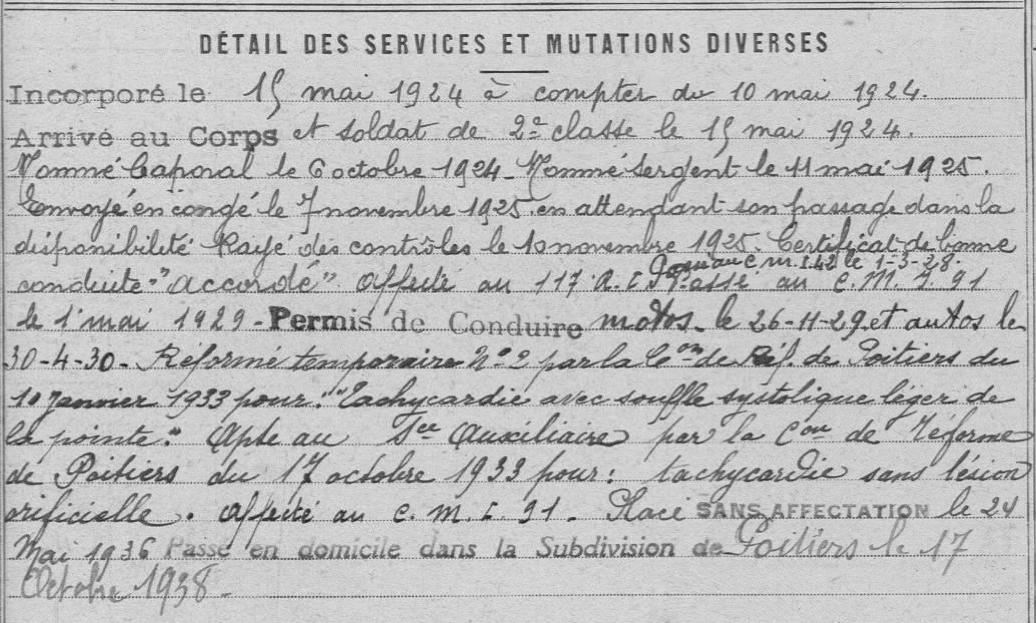 DÉTAIL DES SERVICES ET MUTATIONS DIVERSES
Incorporé le 15 mai 1924 à compter du 10 mai 1924.
Arrivé au Corps et soldat de 2e classe le 15 mai 1924.
Nommé Caporal le 6 octobre 1924 - Nommé Sergent le 11 mai 1925.
Envoyé en congé le 7 novembre 1925 en attendant son passage dans la
disponibilité Rayé des contrôles le 10 novembre 1925. Certificat de bonne
au C.M.I. 42 le 1-3-28.
conduite "accordé" Affecté au 117 R. I. Passé au C. M. I. 91
le 1er mai 1929 - Permis de Conduire motos - le 26-11-29 et autos le
30-4-30 - Réformé temporaire No 2 par la Con de Réf. de Poitiers du
10 janvier 1933 pour: "Tachycardie avec souffle systolique léger de
la pointe." Apte au Sce Auxiliaire par la Con de Réforme
de Poitiers du 17 octobre 1933 pour: tachycardie sans lésion
orificielle. Affecté au C. M. I. 91 - Placé SANS AFFECTATION le 24
Mai 1936 Passé en domicile dans la Subdivision de Poitiers le 17
Octobre 1938 -